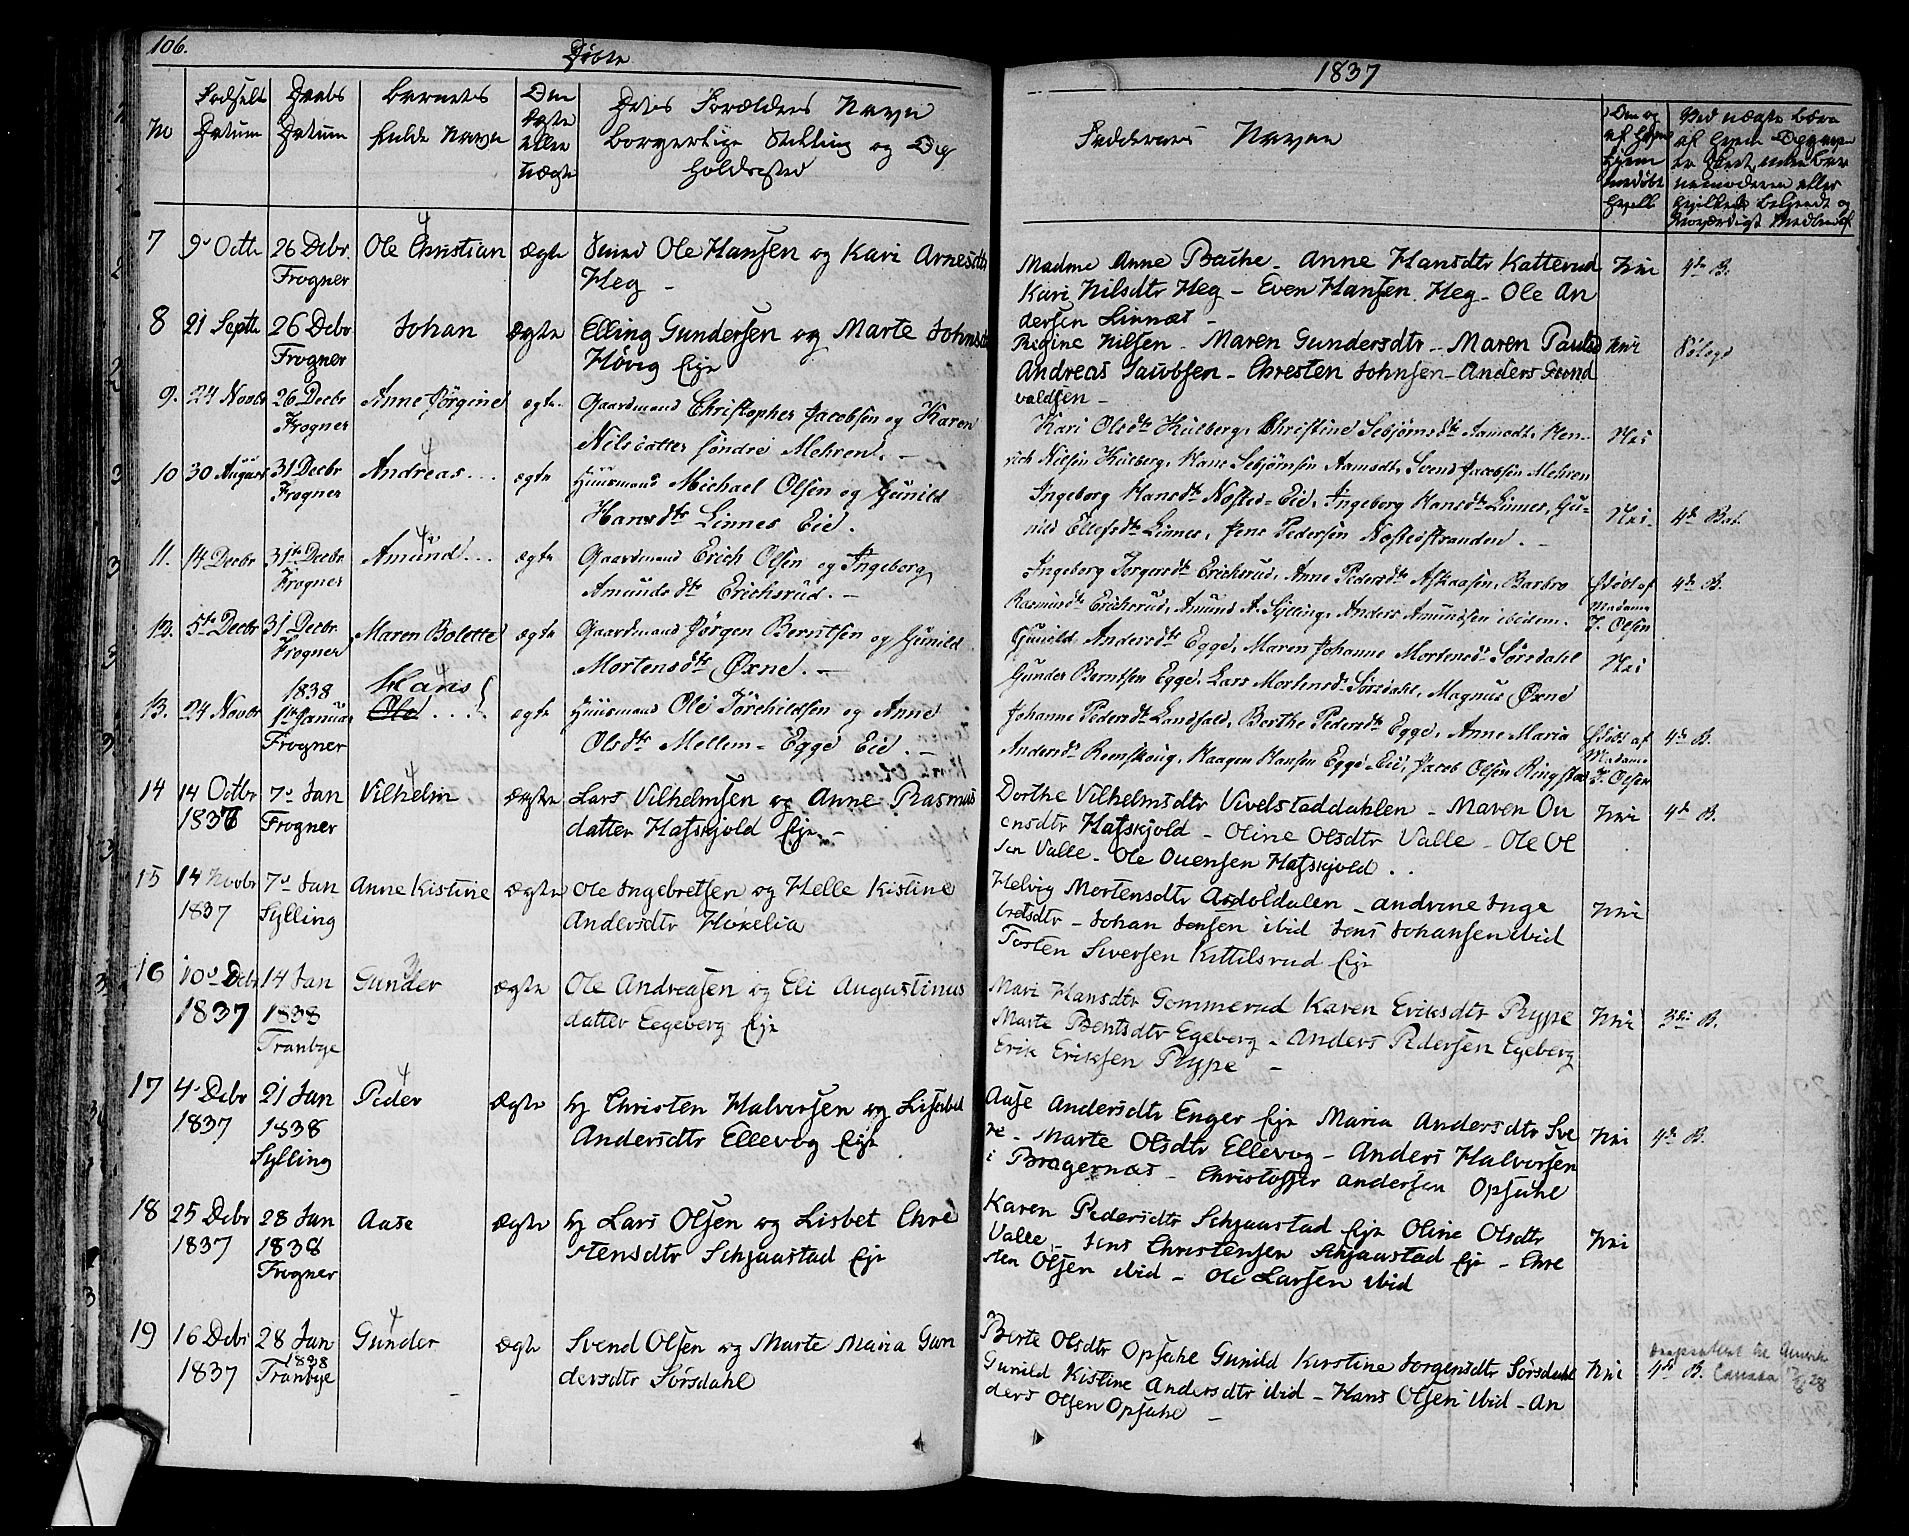 106.
Døbte
No
Fødsels Datum
Daabs Datum
Barnets fulde Navn
Om Ægte eller Uægte
Dets Forældres Navn borgerlige Stilling og Op holdssted
7
9' Octbr
26 Debr
Frogner
Ole Christian
4
Ægte
Ole Hansen og Kari Arnesdtr
Heg –
8
21 Septb
26 Debr
Frogner
Johan
Ægte
Elling Gundersen og Marte Johnsdtr
Høvig Eje
9.
24 Novbr
26 Decbr
Frogner
Anne Jørgine
ægte
Gaardmand Christopher Jacobsen og Karen
Nilsdatter søndre Mehren. –
10
30 August
31 Decbr
Frogner
Andreas...
4
ægte
Huusmand Michael Olsen og Gunild
Hansdtr Linnes Eie.
11.
14 Decbr
31te Decbr
Frogner
Amund...
4
ægte
Gaardmand Erich Olsen og Ingeborg
Amundsdtr Erichsrud. –
12.
5te Decbr
31 Decbr
Frogner
Maren Bolette
ægte
Gaardmand Jørgen Berntsen og Gunild
Mortensdtr Øxne. –
13.
24 Novbr
1838
1te Januar
Frogner
Hans
4
Ole...
ægte
Huusmand Ole Torchildsen og Anne
Olsdtr Mellem-Egge Eie. –
14
14 Octbr
1836
7' Jan
Frogner
Vilhelm
4
Ægte
Lars Vilhelmsen og Anne Rasmus
datter Hafskjold Eje –
15
14 Novbr
1837
7' Jan
Sylling
Anne Kistine
Ægte
Ole Ingebretsen og Helle Kistine
Andersdtr Hørelia
16
10' Debr
1837
14 Jan
1838
Tranbye
Gunder
3
Ægte
Ole Andreasen og Eli Augustinus
datter Eegeberg Eje
17
4' Debr
1837
21 Jan
1838
Sylling
Peder
4
Ægte
Christen Halvorsen og Lisabet
Andersdtr Ellevog Eje
18
25 Debr
1837
28 Jan
1838
Frogner
Aase
Ægte
Lars Olsen og Lisbet Chre
stensdtr Schjaastad Eje
19
16 Debr
1837
28 Jan
1838
Tranbye
Gunder
4
Ægte
Svend Olsen og Marte Maria Gun
dersdtr Sørsdahl
1837
Faddernes Navne
Madme Anne Bache – Anne Hansdtr Katterud
Kari Nilsdtr Heg – Even Hansen Heg – Ole An
dersen Linnæs –
Nei
4de B.
Regine Nilsen – Maren Gundersdtr – Maren Paulsd
Andreas Jacobsen – Chresten Johnsen – Anders Grond
valdsen –
Nei
Kari Olsdtr Kulberg, Christine Sebjørnsdtr Aamodt, Hen-
rich Nielsen Kulberg, Hans Sebjørnsen Aamodt, Svend Jacobsen Mehren
Nei
Ingeborg Hansdtr Nøsted-Eie, Ingeborg Hansdtr Linnes, Gu-
nild Ellefsdtr Linnes, Jens Pedersen Nøstedstranden. –
Nei
4de Bat.
Ingeborg Torgersdtr Erichsrud, Anne Pedersdtr Askaasen, Barbro
Rasmusdtr Erichsrud, Amund A. Sylling, Anders Amundsen ibidem.
døbt af
Madame
J. Olsen
4de B.
Gunild Andersdtr Egge, Maren Johanne Mortensdtr Sørsdahl
Gunder Berntsen Egge, Lars Mortensen Sørsdahl, Magnus Øxne
Nei
Johanne Pedersdtr Landfald, Berthe Pedersdtr Egge, Anne Maria
Andersdtr Remskoug, Haagen Hansen Egge Eie, Jacob Olsen Ringstad
døbt af
Madame
J. Olsen
4de B.
Dorthe Vilhelmsdtr Vivelstaddahlen – Maren Ou
ensdtr Hafskjold – Oline Olsdtr Valle – Ole Ol
sen Valle – Ole Ouensen Hafskjold..
Nei
4de B.
Helvig Mortensdtr Asdoldalen – Andrine Inge
bretsdtr – Johan Jensen ibid Jens Johansen ibid
Tosten Siversen Kittilsrud Eje
Nei
Mari Hansdtr Gommerud Karen Eriksdtr Rype
Marte Bentsdtr Egeberg – Anders Pedersen Egeberg
Erik Eriksen Rype –
Nei
3die B.
Aase Andersdtr Enger Eje Maria Andersdtr Sve
re – Marte Olsdtr Ellevog – Anders Halvorsen
i Bragernæs – Christoffer Andersen Opsahl
Nei
4de B.
Karen Pedersdtr Schjaastad Eje Oline Olsdtr
Valle – Jens Christensen Schjaastad Eje – Chre
sten Olsen ibid – Ole Larsen ibid
Nei
Berte Olsdtr Opsahl Gunild Kirstine Jorgensdtr Sørsdahl
Gunild Kistine Andersdtr ibid – Hans Olsen ibid – An
ders Olsen Opsahl –
Nei
4de B.